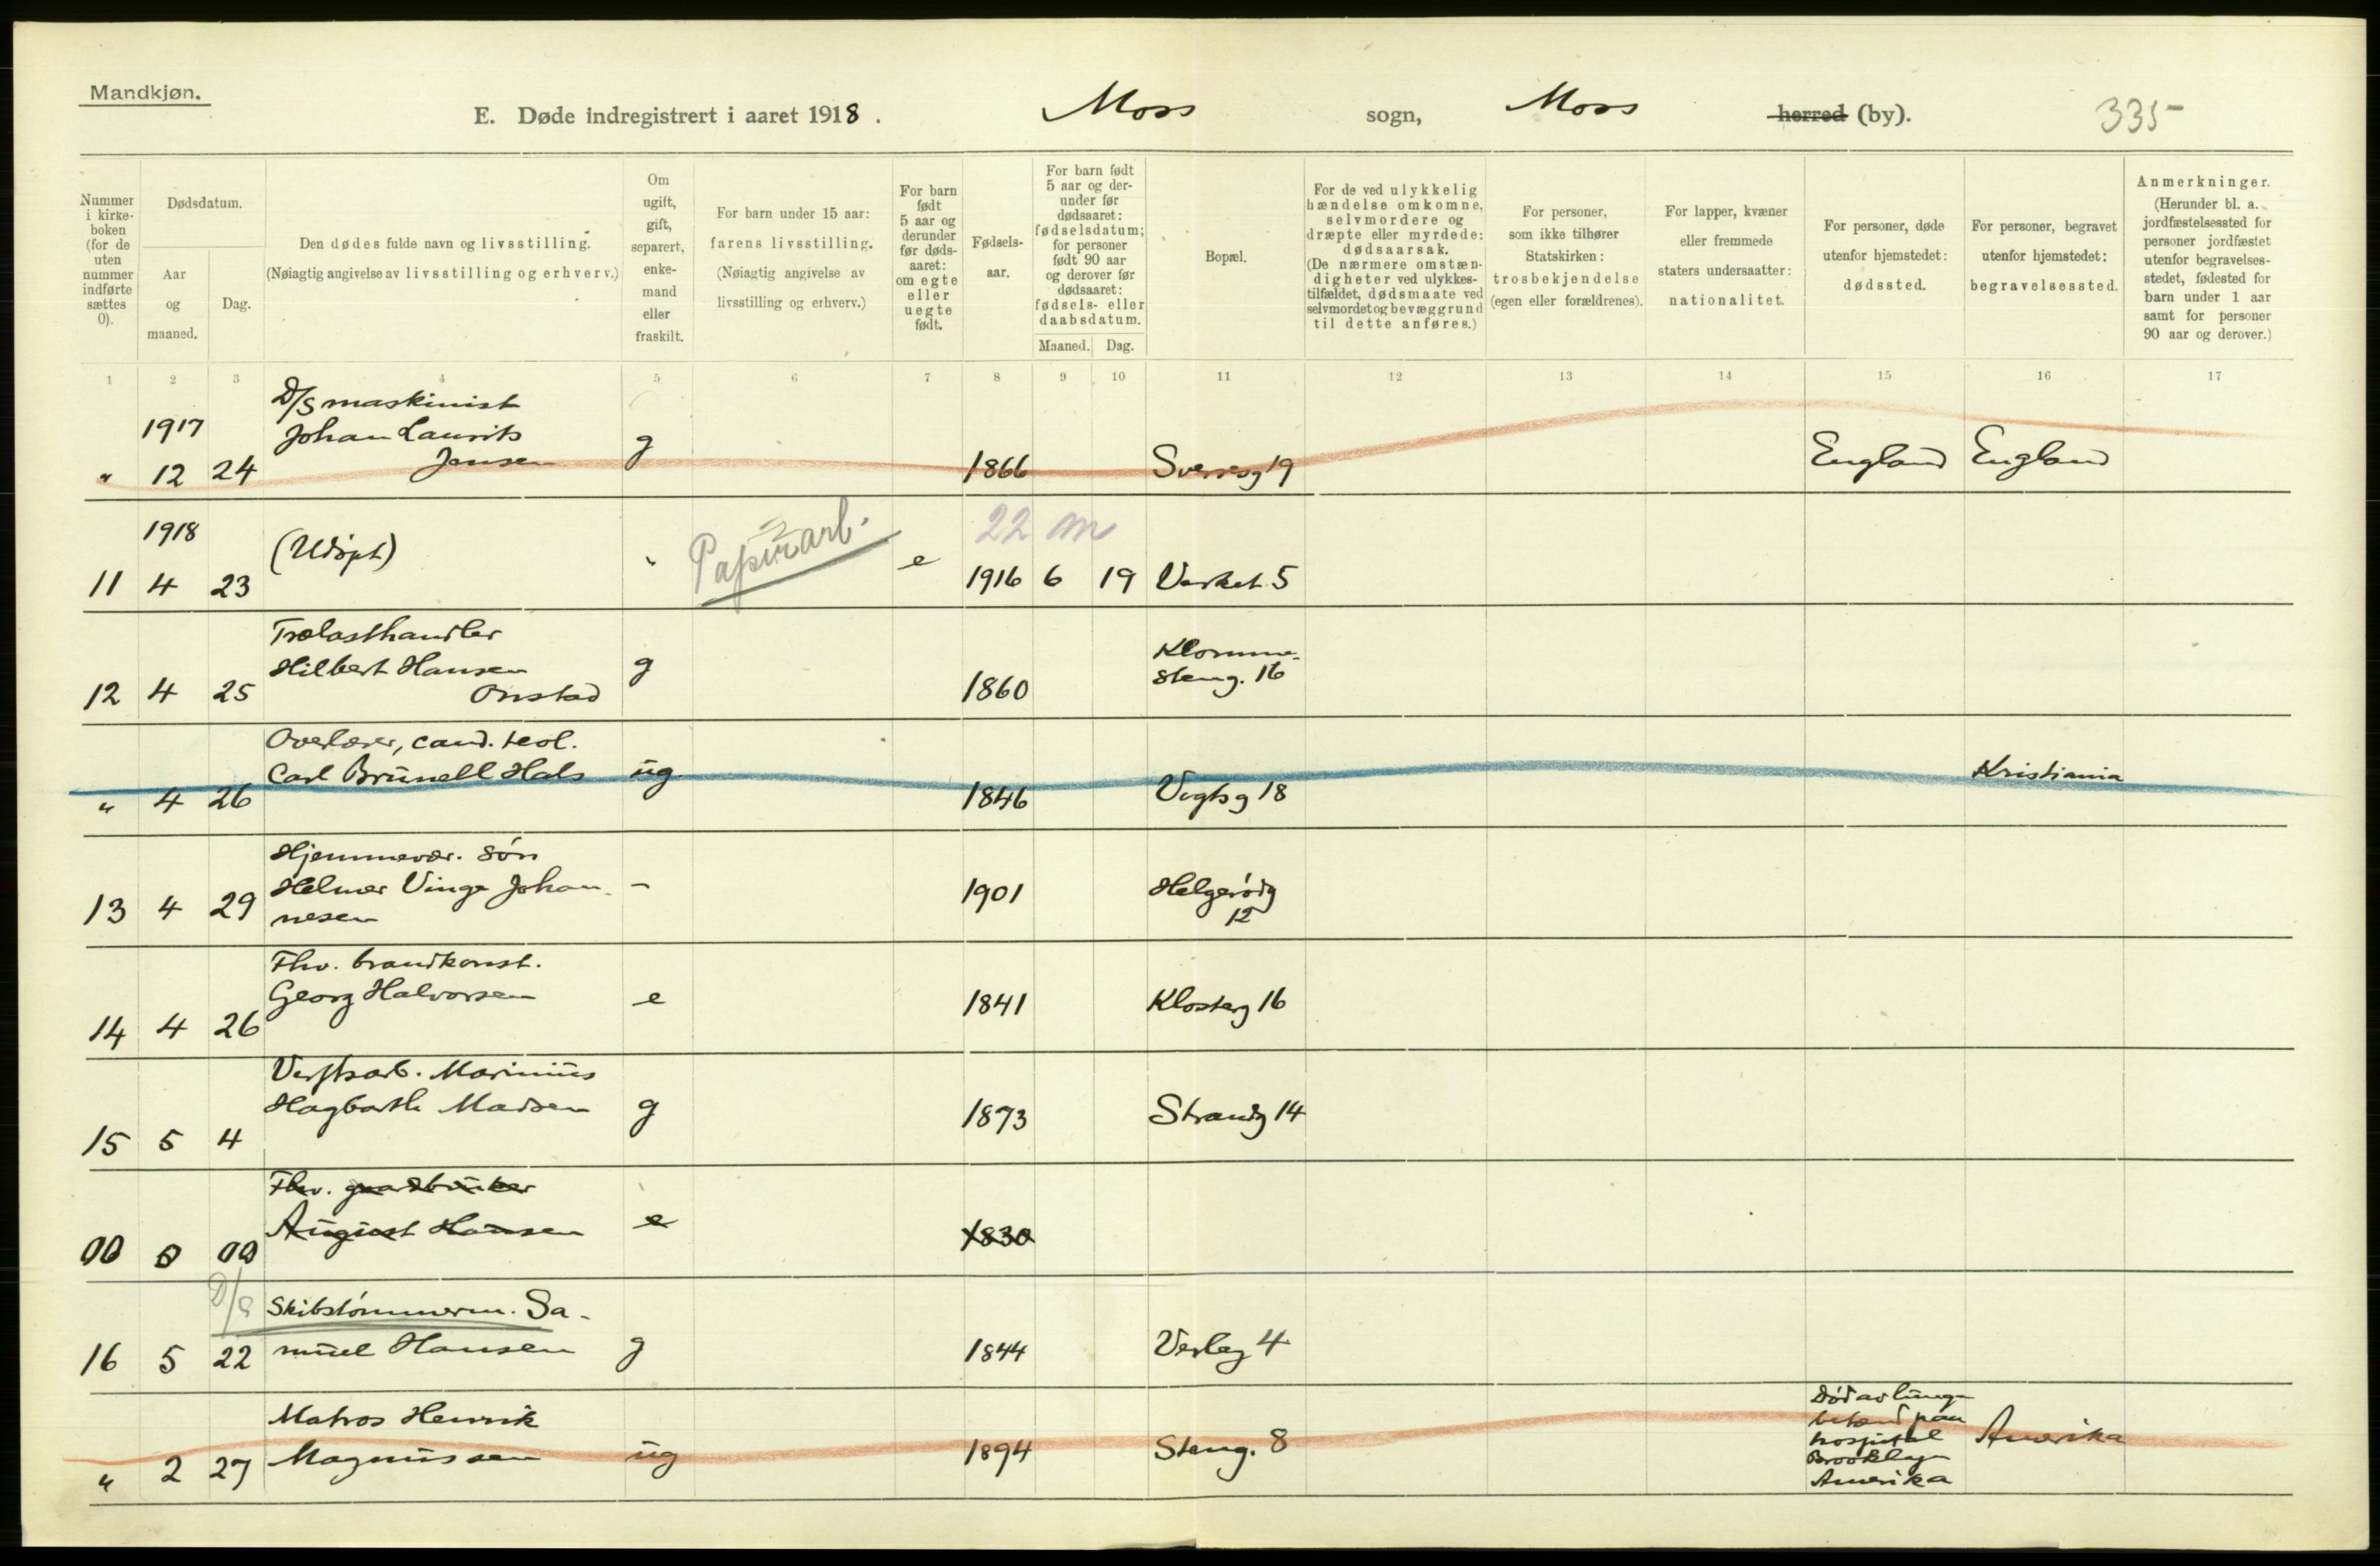 Mandkjøn.
E. Døde indregistrert i aaret 1918.
Moss sogn, Moss herred (by).
335
Nummer i kirkeboken (for de uten nummer indførte sættes 0).
Dødsdatum.
Aar og maaned.
Dag.
Den dødes fulde navn og livsstilling.
(Nøiagtig angivelse av livsstilling og erhverv.)
Om ugift, gift, separert, enkemand eller fraskilt.
For barn under 15 aar: farens livsstilling.
(Nøiagtig angivelse av livsstilling og erhverv.)
For barn født 5 aar og derunder før dødsaaret: om egte eller uegte født.
Fødselsaar.
For barn født 5 aar og derunder før dødsaaret: fødselsdatum; for personer født 90 aar og derover før dødsaaret: fødsels- eller daabsdatum.
Maaned. Dag.
Bopæl.
For de ved ulykkelig hændelse omkomne, selvmordere og dræpte eller myrdede: dødsaarsak.
(De nærmere omstændigheter ved ulykkestilfældet, dødsmaate ved selvmordet og bevæggrund til dette anføres.)
For personer, som ikke tilhører Statskirken: trosbekjendelse (egen eller forældrenes).
For lapper, kvæner eller fremmede staters undersaatter: nationalitet.
For personer, døde utenfor hjemstedet: dødssted.
For personer, begravet utenfor hjemstedet: begravelsessted.
Anmerkninger.
(Herunder bl. a. jordfæstelsessted for personer jordfæstet utenfor begravelsesstedet, fødested for barn under 1 aar samt for personer 90 aar og derover.)
1 2 3 4 5 6 7 8 9 10 11 12 13 14 15 16 17
D/S maskinist
1917 Johan Laurits
" 12 24 Jensen g 1866 Sverresg 19 England England
1918 (Udøpt) " Papirarb. e 22 m
11 4 23 1916 6 19 Verket 5
Trælasthandler
Hilbert Hansen g Klomme-
12 4 25 Onstad 1860 steng. 16
Overlærer, cand. teol.
Carl Brünell Hals ug. Kristiania
" 4 26 1846 Vogtsg 18
Hjemmevær. søn
Helmer Vinge Johan-
13 4 29 nesen - 1901 Helgerødg 12
Fhv. brandkonst.
Georg Halvorsen e 1841 Klosterg 16
14 4 26
Verftsarb. Marinius
Hagbarth Madsen g 1873 Strandg 14
15 5 4
Fhv. gaardbruker
August Hansen e 1830
00 0 00
D/S Skibstømmerm. Sa-
16 5 22 muel Hansen g 1844 Verleg 4
Matros Henrik
" 2 27 Magnussen ug 1894 Steng. 8
Død av lunge-
betænd paa
hospital
Brooklyn
Amerika
Amerika